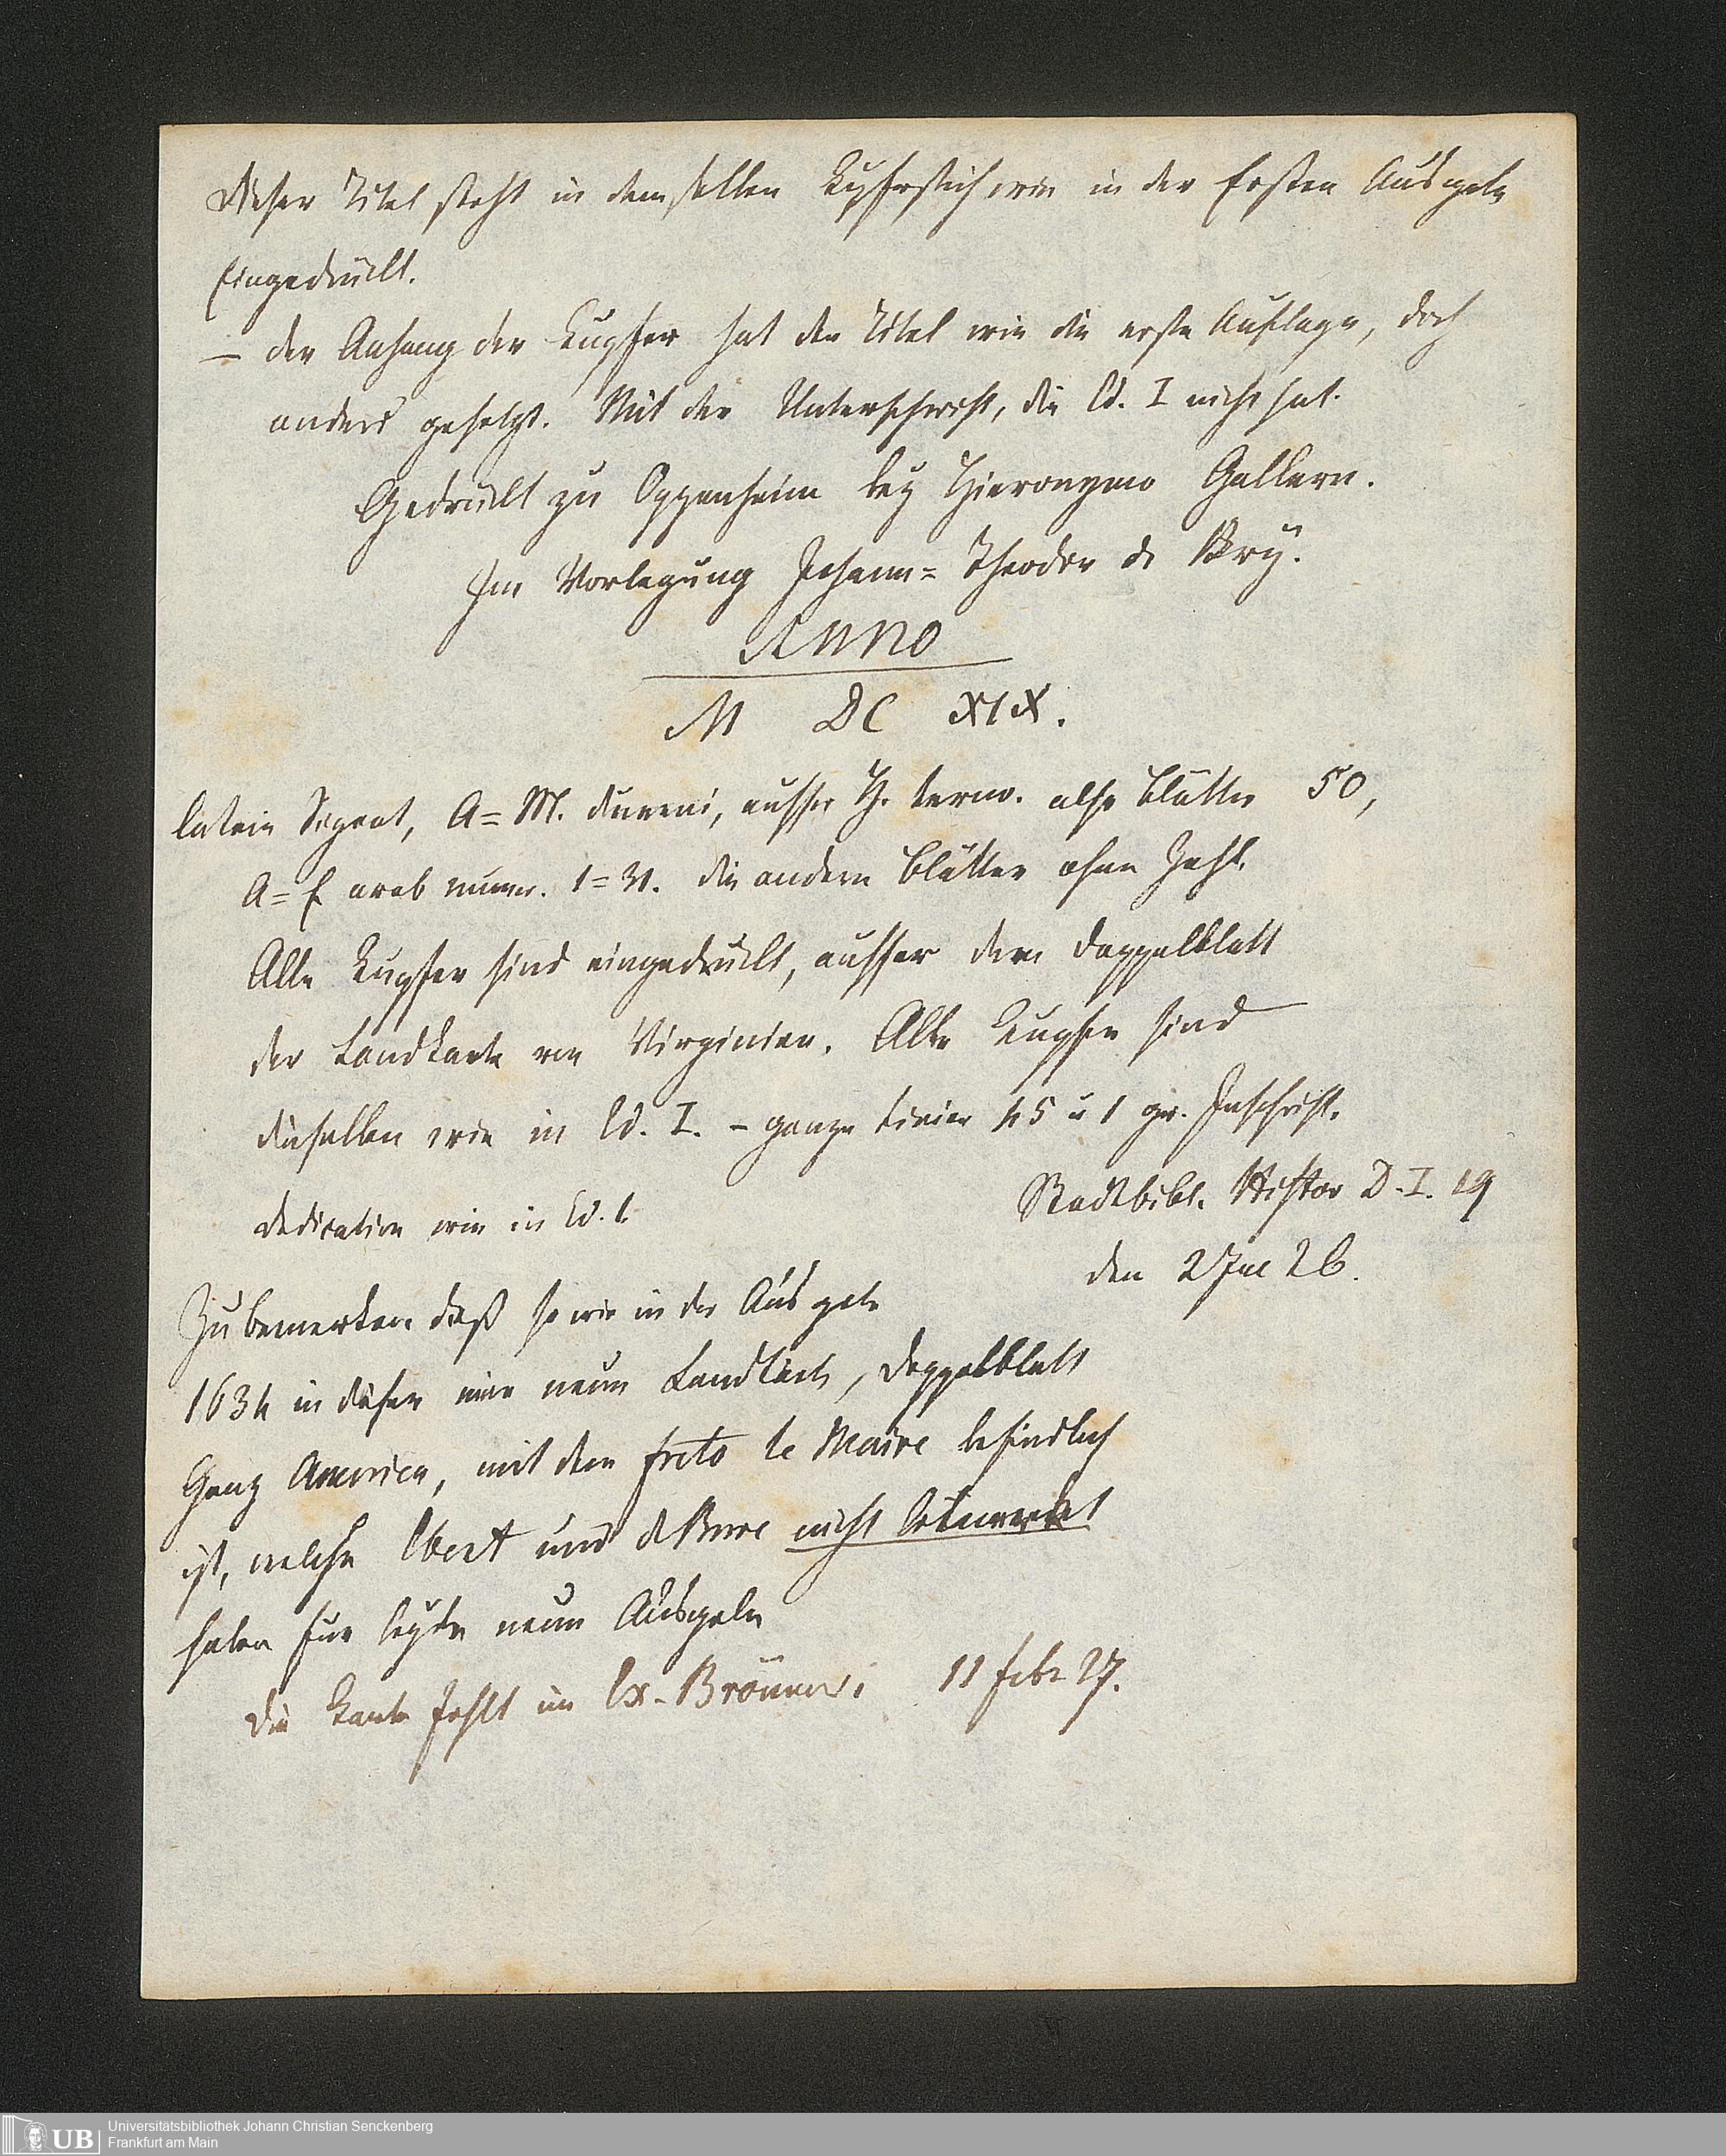 Dieser Titel steht in demselben Kupferstich wie in der Ersten Ausgabe
Eingedruckt.
— der Anhang der Kupfer hat den Titel wie die erste Auflage, doch
anders gesetzt. Mit der Unterschrift, die Ed. I nicht hat.
Gedruckt zu Oppenheim bey Hieronymo Gallern.
In Vorlegung Johann= Theodor de Brÿ.
Anno
M DC XIX.
latein Signat, A=M. duerni, ausser H. tern. also Blätter 50,
A=E arab numer. 1=31. die andern Blätter ohne Zahl.
Alle Kupfer sind eingedruckt, ausser dem Doppelblatt
der Landkarte von Virginien. Alle Kupfer sind
dieselben wie in Ed. I. – ganze Linien 45 u 1 gr. Inschrift.
Dedication wie in Ed. I.
Stadtbibl. Histor D. I. 19
den 2 Jul 26.
Zu bemerken daß so wie in der Ausgabe
1634 in dieser eine neue Landkarte, Doppelblatt
Ganz America, mit dem freto le Maire befindlich
ist, welche Ebert und de Bure nicht bemerkt
haben für beyde neue Ausgaben
Die Karte fehlt im Ex. Brönner. 11 febr 27.
UB
Universitätsbibliothek Johann Christian Senckenberg
Frankfurt am Main